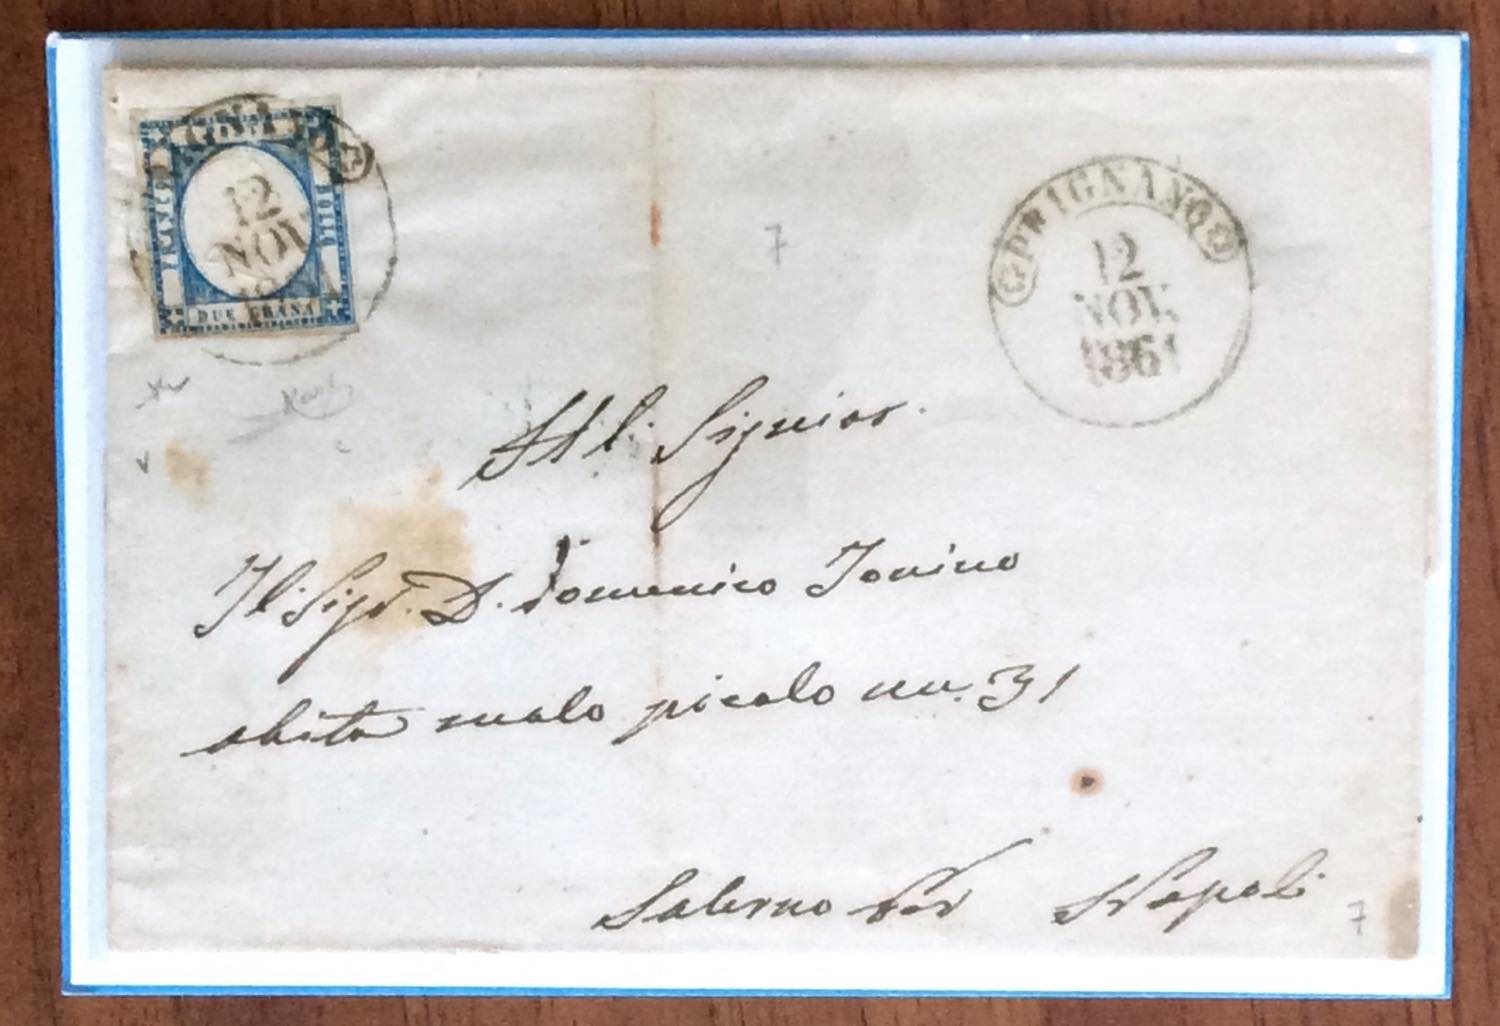 FRANCO
BOLLO
DUE GRANA
12
NOV
PRIGNANO
12
NOV.
1861
7
Al. Signior.
Il. Sigr. D. Domenico Jovino
abita malo picolo nu. 31
Salerno Per Napoli
7